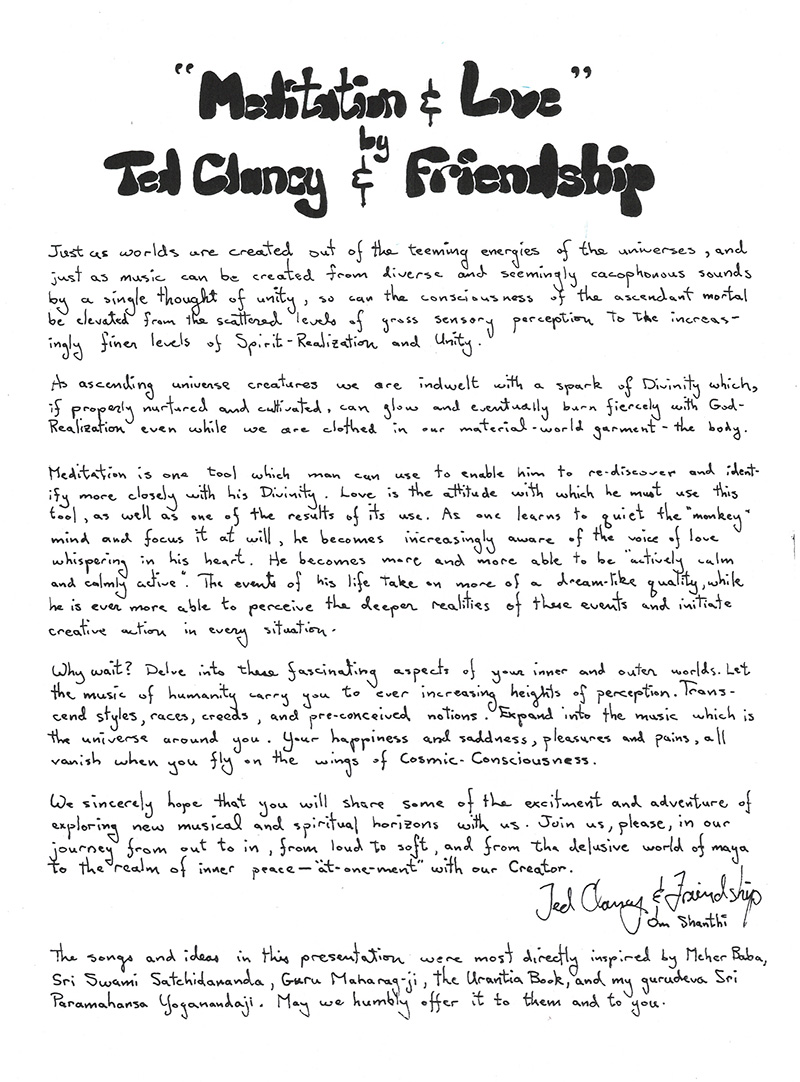 "Meditation & Love"
by
Ted Clancy & Friendship
Just as worlds are created out of the teeming energies of the universes, and
just as music can be created from diverse and seemingly cacophonous sounds
by a single thought of unity, so can the consciousness of the ascendant mortal
be elevated from the scattered levels of gross sensory perception to the increas-
ingly finer levels of Spirit-Realization and Unity.
As ascending universe creatures we are indwelt with a spark of Divinity which,
if properly nurtured and cultivated, can glow and eventually burn fiercely with God-
Realization even while we are clothed in our material-world garment - the body.
Meditation is one tool which man can use to enable him to re-discover and ident-
ify more closely with his Divinity. Love is the attitude with which he must use this
tool, as well as one of the results of its use. As one learns to quiet the "monkey"
mind and focus it at will, he becomes increasingly aware of the voice of love
whispering in his heart. He becomes more and more able to be "actively calm
and calmly active". The events of his life take on more of a dream-like quality, while
he is ever more able to perceive the deeper realities of these events and initiate
creative action in every situation.
Why wait? Delve into these fascinating aspects of your inner and outer worlds. Let
the music of humanity carry you to ever increasing heights of perception. Trans-
cend styles, races, creeds, and pre-conceived notions. Expand into the music which is
the universe around you. Your happiness and saddness, pleasures and pains, all
vanish when you fly on the wings of Cosmic-Consciousness.
We sincerely hope that you will share some of the excitment and adventure of
exploring new musical and spiritual horizons with us. Join us, please, in our
journey from out to in, from loud to soft, and from the delusive world of maya
to the realm of inner peace — "at-one-ment" with our Creator.
Ted Clancy & Friendship
Om Shanthi
The songs and ideas in this presentation were most directly inspired by Meher Baba,
Sri Swami Satchidananda, Guru Maharag-ji, the Urantia Book, and my gurudeva Sri
Paramahansa Yoganandaji. May we humbly offer it to them and to you.